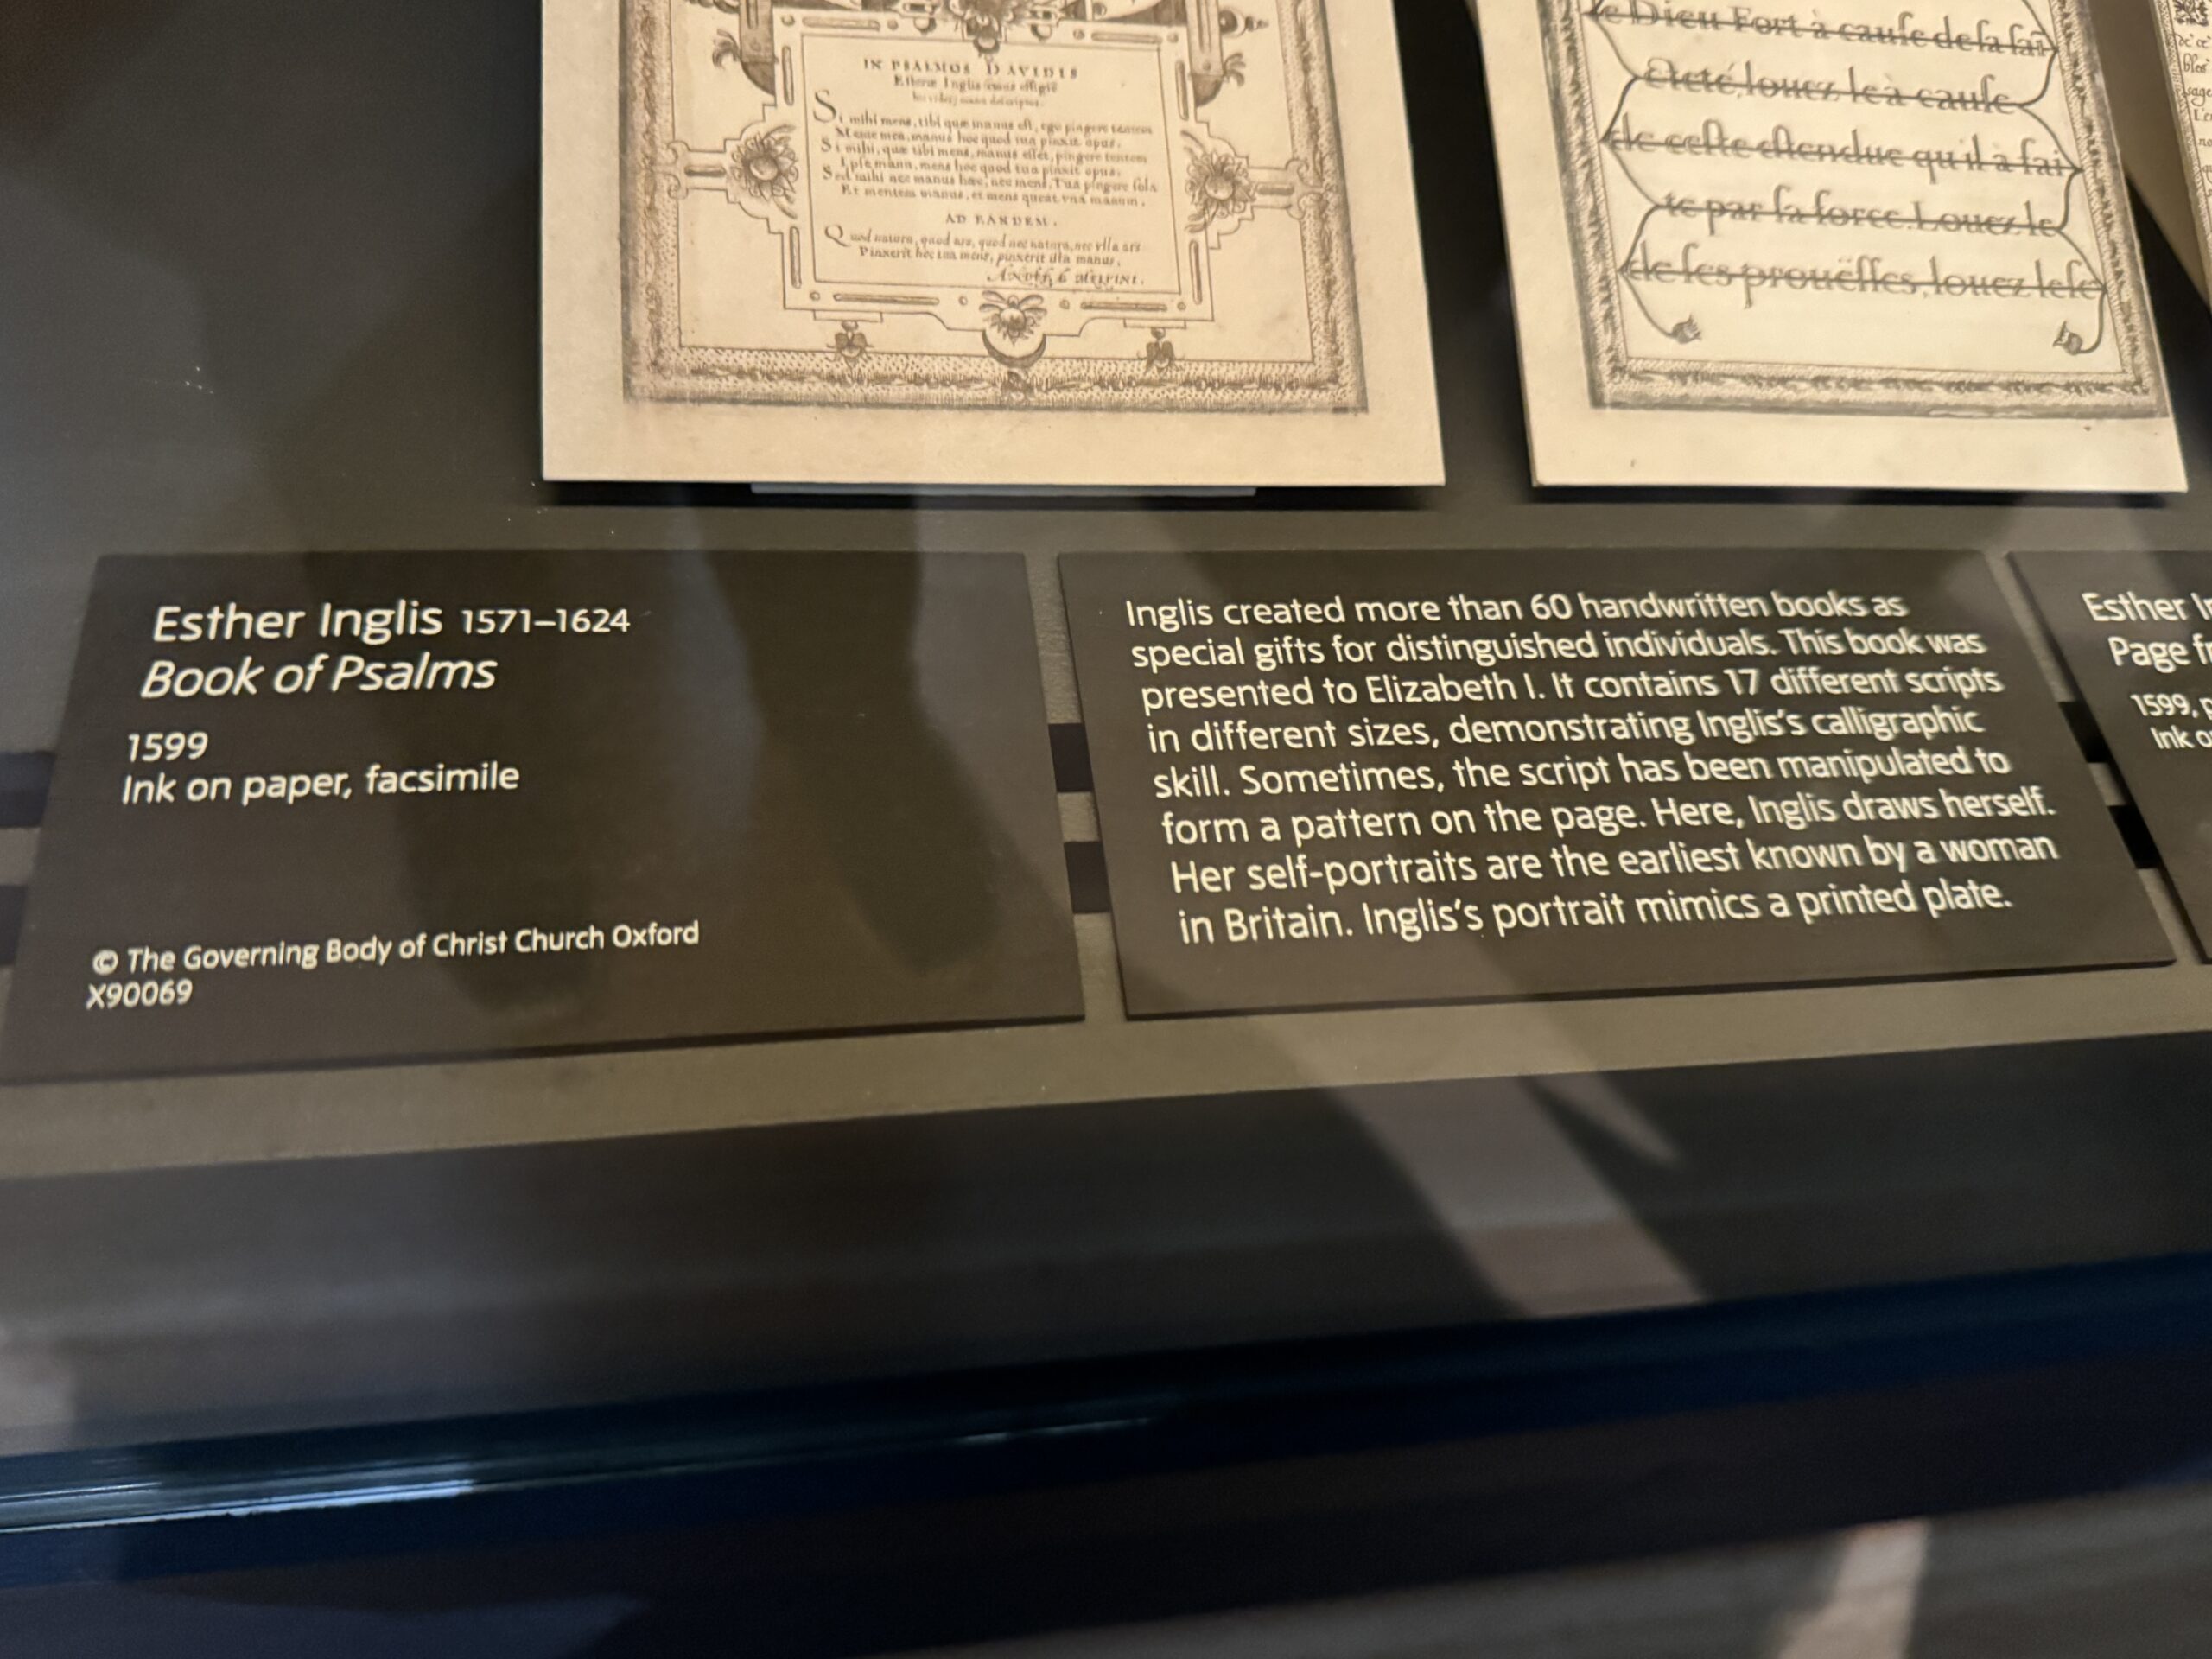 IN PSALMOS DAVIDIS
Si mihi mens, tibi quæ manus est, ego pingere tentem
Mente mea, manus hoc quod tua pinxit opus.
Si mihi, quæ tibi mens, manus esset, pingere tentem
Ipse manu, mens hoc quod tua pinxit opus.
Sed mihi nec manus hæc, nec mens, Tua pingere sola
Et mentem manus, et mens queat vna manum.
AD EANDEM.
Quod natura, quod ars, quod nec natura, nec vlla ars
Pinxerit hoc tua mens, pinxerit illa manus.
le Dieu Fort à cause de sa sai
cteté, louez le à cause
de ceste estendue qu'il à fai
te par sa force. Louez le
de ses prouësses, louez lese
Esther Inglis 1571–1624
Book of Psalms
1599
Ink on paper, facsimile
© The Governing Body of Christ Church Oxford
X90069
Inglis created more than 60 handwritten books as
special gifts for distinguished individuals. This book was
presented to Elizabeth I. It contains 17 different scripts
in different sizes, demonstrating Inglis's calligraphic
skill. Sometimes, the script has been manipulated to
form a pattern on the page. Here, Inglis draws herself.
Her self-portraits are the earliest known by a woman
in Britain. Inglis's portrait mimics a printed plate.
Esther
Page
1599,
Ink